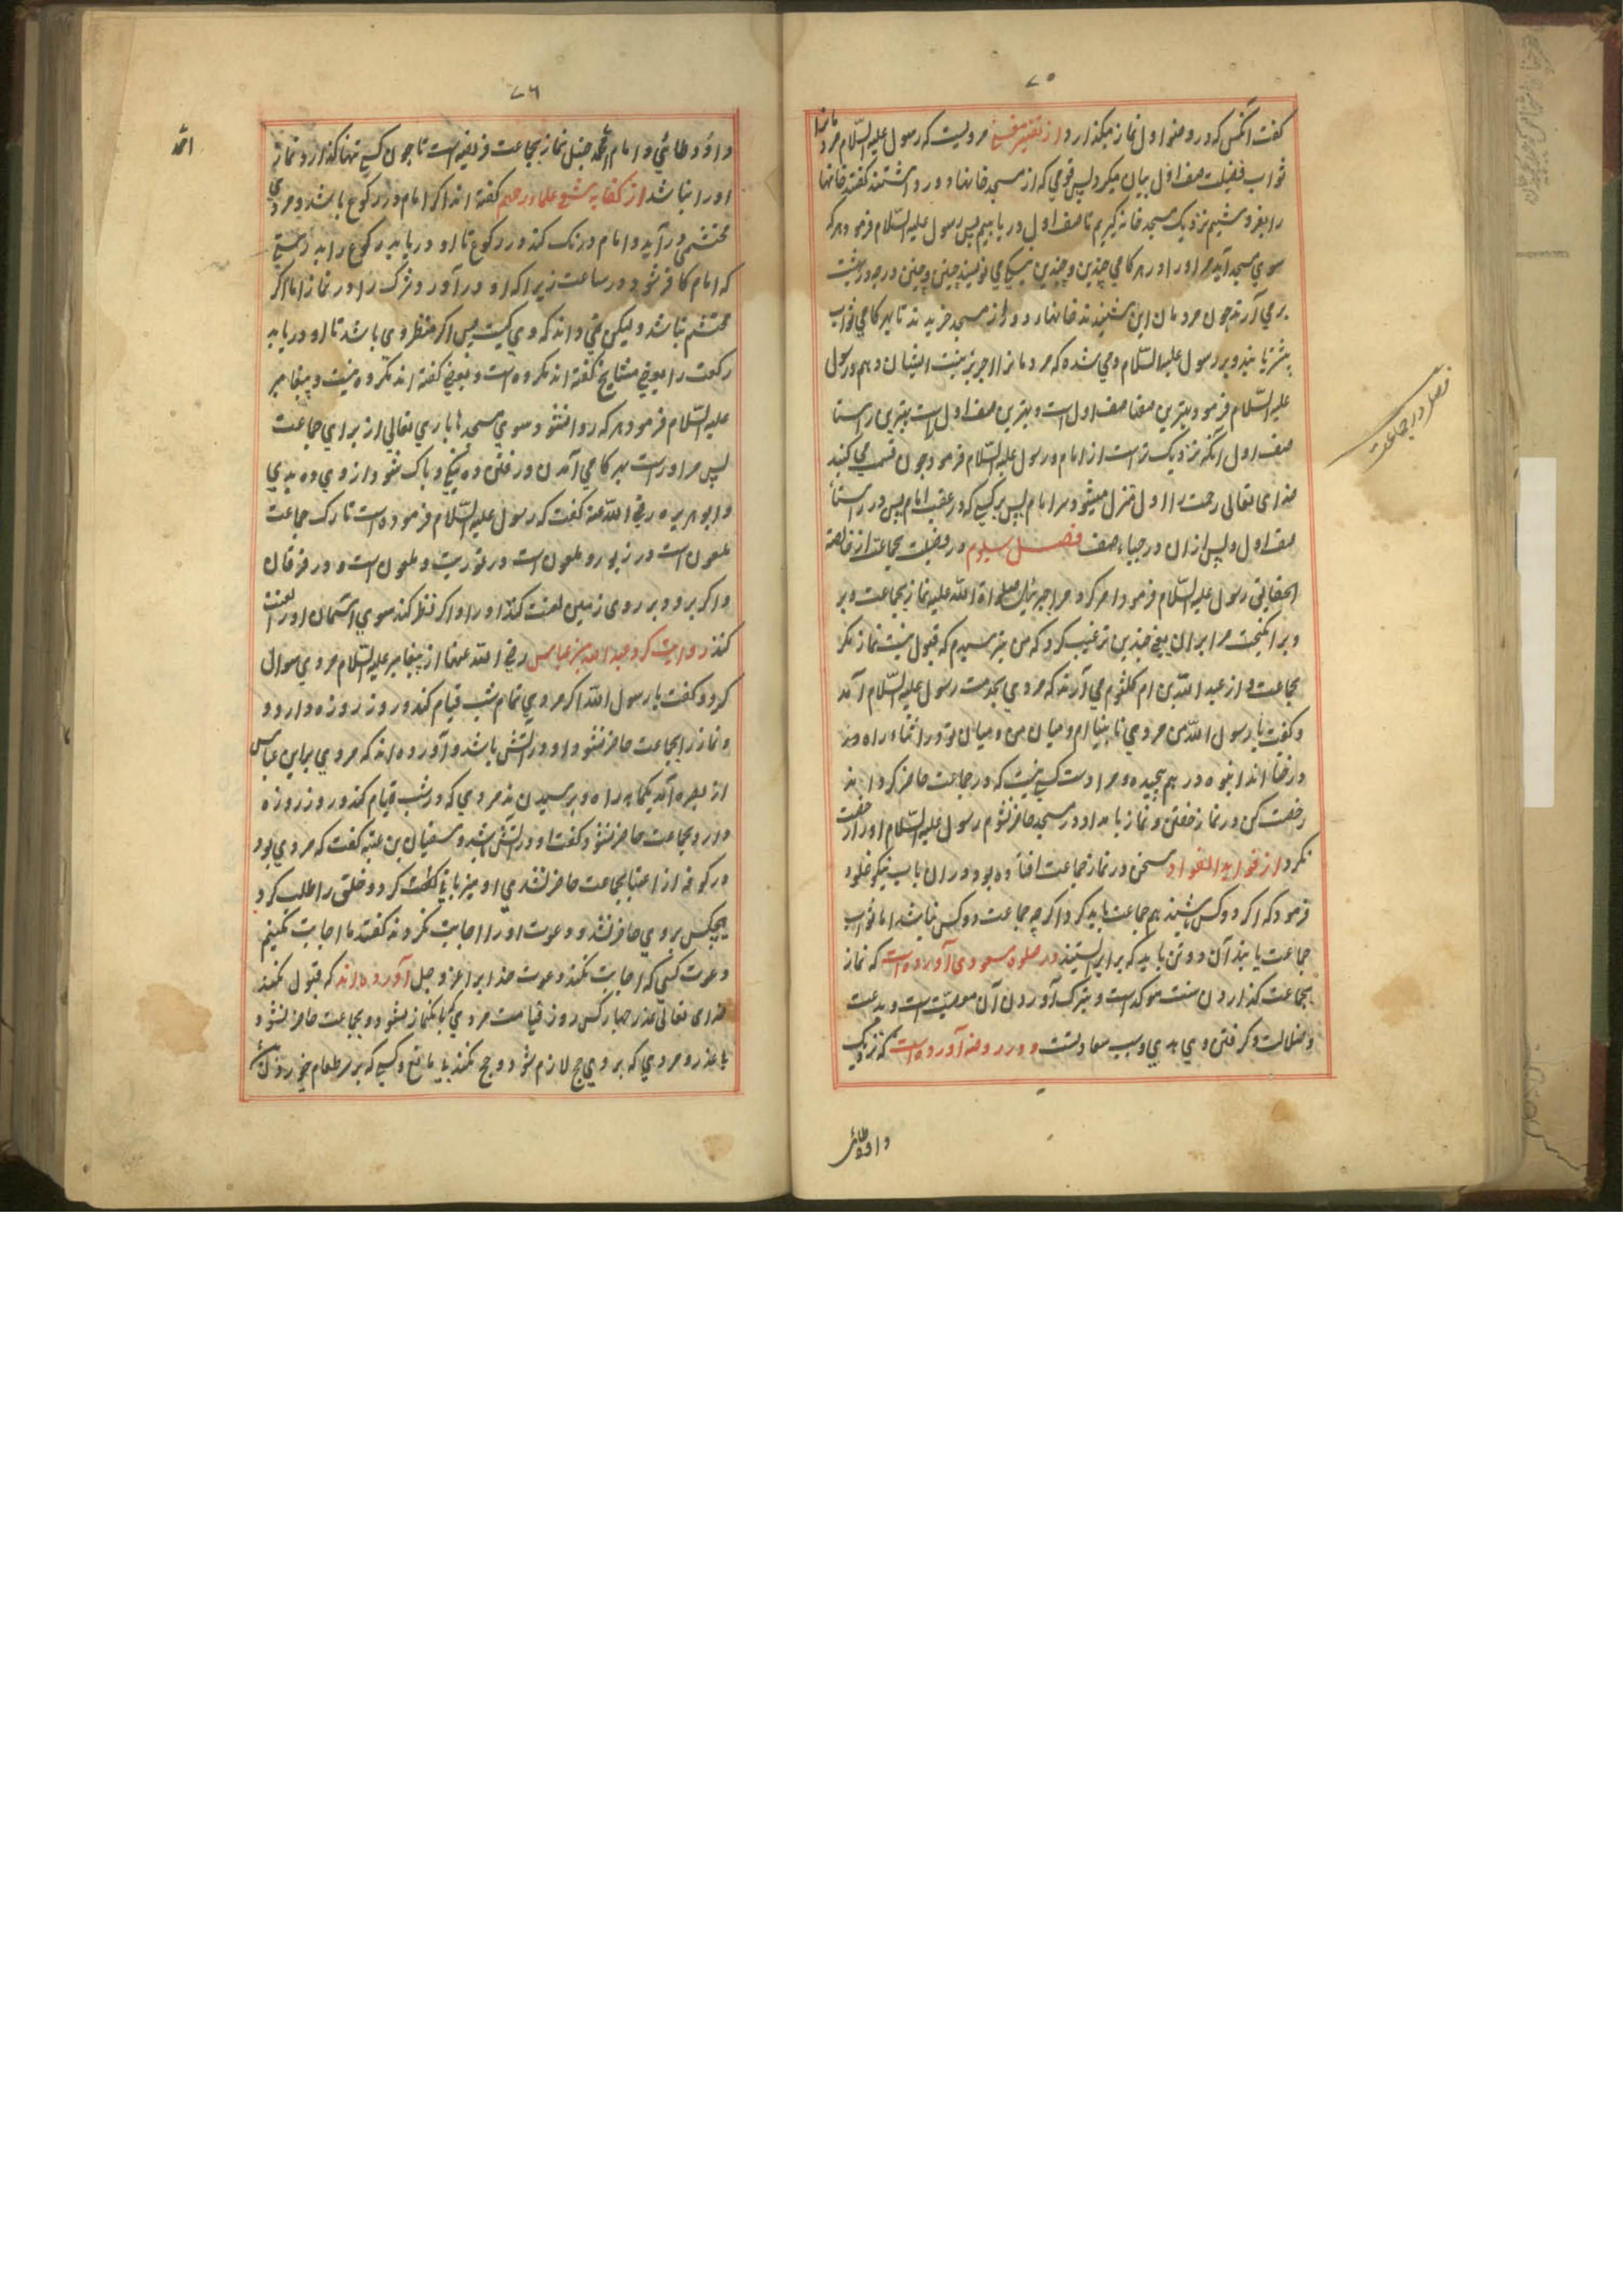 ٧٥
گفت آنکس که در صف اول نماز میگذارد از تفسیر مغنی مرویست که رسول علیه السّلام مردمانرا
ثواب فضیلت صف اول بیان میکرد پس قومی که از مسجد خانها دور داشتند گفتند خانها
را بفروشیم نزدیک مسجد خانه گیریم تا صف اول دریابیم پس رسول علیه السّلام فرمود هر که
سوی مسجد آید مر او را در هر کامی چندین و چندین نیکی می نویسند چنین و چنین درجه در بهشت
بر می آرند چون مردمان این شنیدند خانها دور از مسجد خریدند تا بهر کامی ثواب
بیشتر یابند و بر رسول علیه السّلام وحی شده که مردمانرا جز نیت ایشان دهم و رسول
علیه السّلام فرمود بهترین صفها صف اول است و بهترین صف اول است بهترین راستا
صف اول آنکه نزدیک تر است از امام و رسول علیه السّلام فرمود چون قسمت می کنند
خدای تعالی رحمت را اول منزل میشود بر امام پس بر کسی که در عقب امام پس در راستا
صف اول و پس ازان در چپاء صف فصل سیوم در فضیلت جماعت از خالصة
الحقایق رسول علیه السّلام فرمود امر کرد مرا جبرئیل صلواة الله علیه نماز بجماعت و بر
و برانگیخت مرا بران یعنی چندین ترغیب کرد که من بترسیدم که قبول نیست نماز مگر
بجماعت و از عبد الله بن ام کلثوم می آرند که مردی بخدمت رسول علیه السّلام آمد
و گفت یا رسول الله من مردی نابینا ام و میان من و میان تو در اثناء راه
درختا اند انبوه درهم پیچیده و مرا دست کسی نیست که در جماعت حاضر گرداند
رخصت کن در نماز خفتن و نماز بامداد در مسجد حاضر نشوم رسول علیه السّلام او را رخصت
نکرد از فواید الفواد سخن در نماز جماعت افتاده بود دران باب نیکو غلود
فرمود که اگر دو کس باشند هم جماعت باید کرد اگر چه جماعت دو کس نباشد اما ثواب
جماعت یابند آن دو تن باید که برابر ایستند در صلوة مسعودی آورده است که نماز
بجماعت گذاردن سنت موکده است و بترک آوردن آن معصیت است و بدعت
و ضلالت و گرفتن وی هدی و سبب سعادتست و در روضه آورده است که نزدیک
داود طائی
فصل در جماعت
٧٦
داؤد طائی و امام احمد حنبل نماز بجماعت فریضه است تا چون کسی تنها گذارد نماز
او را نباشد از کفایه شعبی علماء رحمهم گفته اند اگر امام در رکوع باشد و مردی
محتشمی درآید و امام درنگ کند در رکوع تا او دریابد رکوع را
که امام کافر شود در ساعت زیرا که او درآورد شرک را در نماز اما اگر
محتشم نباشد و لیکن نمی داند که وی کیست پس اگر منتظر وی باشد تا او دریابد
رکعت را بعضی مشایخ گفته اند مکروه است و بعضی گفته اند مکروه نیست و پیغامبر
علیه السّلام فرمود هر که روانشود سوی مسجدهاء باری تعالی از برای جماعت
پس مر او راست بهر کامی آمدن و رفتن ده نیکی و پاک شود از وی ده بدی
و ابو هریره رضی الله عنه گفت که رسول علیه السّلام فرموده است تارک جماعت
ملعون است در زبور و ملعون است در توریت و ملعون است در فرقان
و اگر برود بر روی زمین لعنت کند او را و اگر نظر کند سوی آسمان او را لعنت
کند روایت کرد عبد الله بن عباس رضی الله عنهما از پیغامبر علیه السّلام مردی سوال
کرد و گفت یا رسول الله اگر مردی تمام شب قیام کند و روز روزه دارد و
و نماز را بجماعت حاضر نشود او در آتش باشد و آورده اند که مردی بر ابن عباس
از بصره آمد یکماهه راه و پرسیدند مردی که در شب قیام کند و روز روزه
دارد و بجماعت حاضر نشود گفت او در آتش باشد و سفیان بن عتبه گفت که مردی بود
در کوفه از اغنیا بجماعت حاضر نشدی او میزبانی کرد و خلق را طلب کرد
هیچکس بر وی حاضر نشد و دعوت او را اجابت نکردند گفتند ما اجابت نکنیم
دعوت کسی که اجابت نکند دعوت خدایرا عزو جل آورده اند که قبول نکند
خدای تعالی عذر چهار کس روز قیامت مردی که بانگ نماز بشنود و بجماعت حاضر نشود
با عذر و مردی که بر وی حج لازم شود و حج نکند بی مانع و کسی که بر سر طعام
احمد